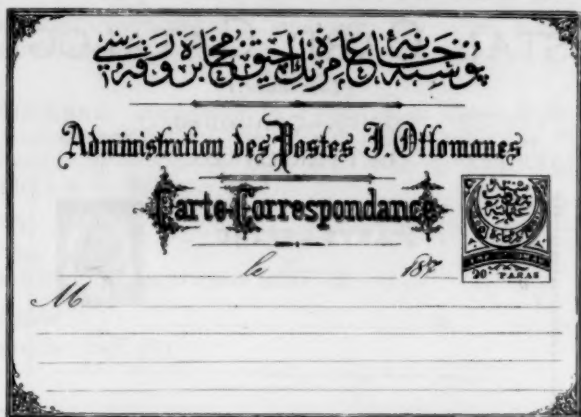 پوسته خانهٔ عامره نك اچيق مخابره ورقه سى
Administration des Postes I. Ottomanes
Carte-Correspondance
le 187
M
20 PARAS